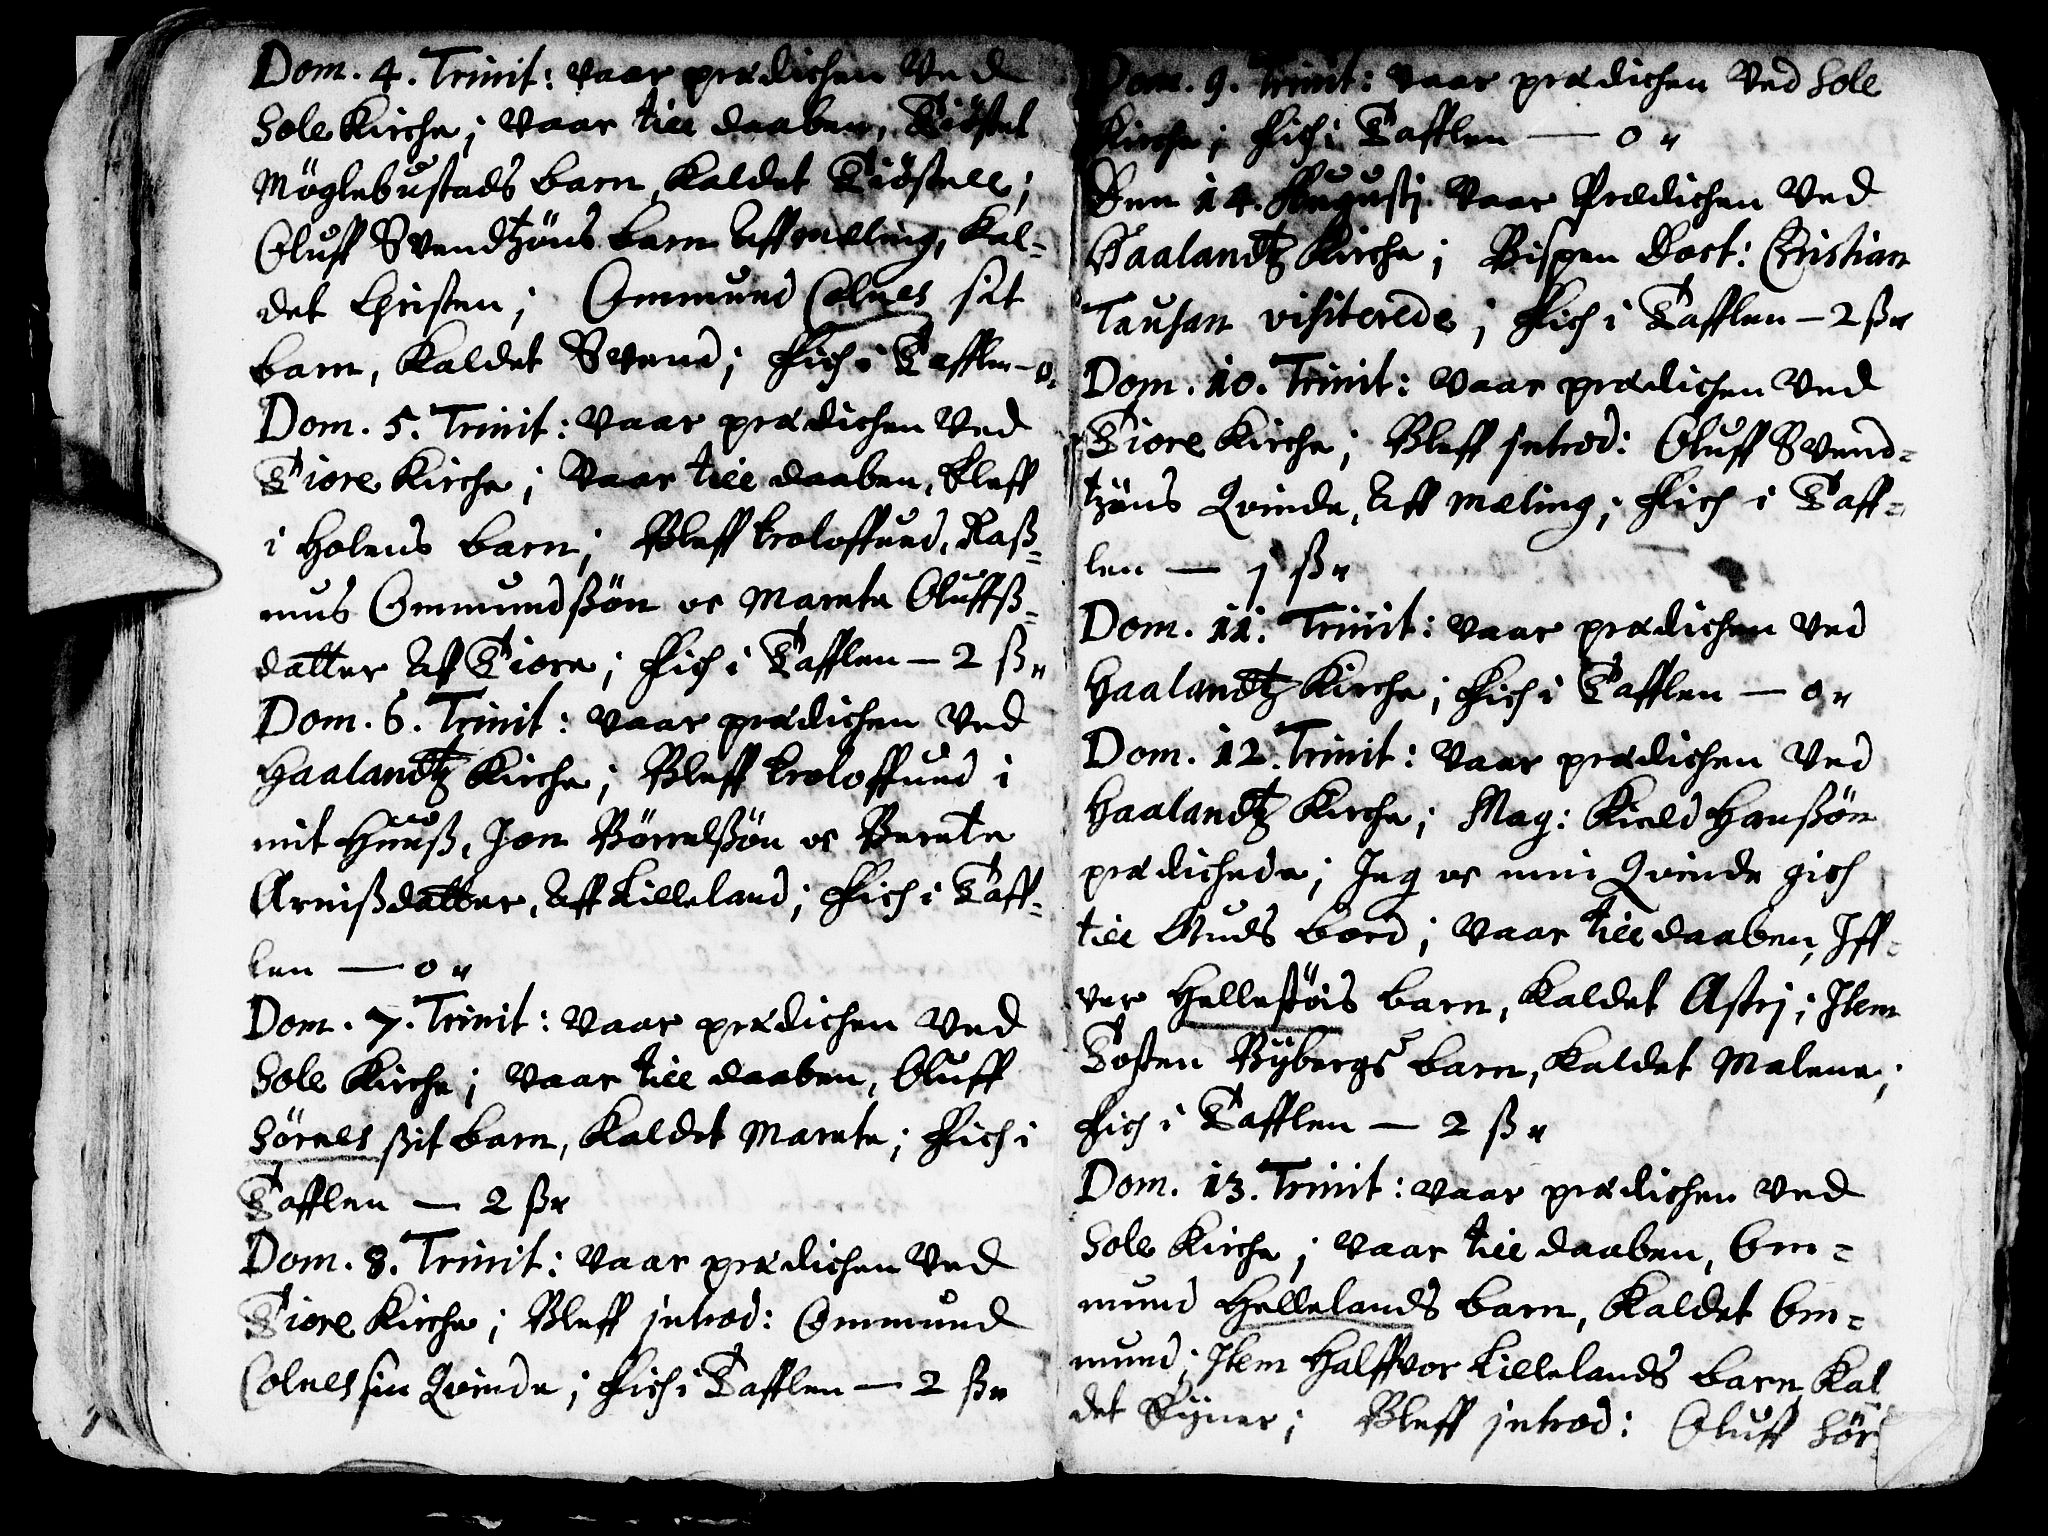 Dom. 4. Trinit: vaar prædichen Ved
Sole Kirche; Vaar till daaben, Tiöstel
Möglebustads barn, kaldet Tiöstell;
Oluff Svendtzöns barn Aff mæling, Kal-
det Christen; Ommund Colnes sit
barn, kaldet Svend; Fich i Tafflen - 0 "
Dom. 5. Trinit: vaar prædichen Ved
Tiore Kirche; Vaar till daaben, Eleff
i Holens barn; Bleff troloffued, Raß-
mus Ommundßön oc Marete Oluffß-
datter Aff Tiora; Fich i Tafflen - 2 ß "
Dom. 6. Trinit: vaar prædichen Ved
Haalandtz Kirche; Bleff troloffued i
mit Huuß, Jon Börrelßön oc Berete
Arnißdatter, Aff Lilleland; Fich i Taff-
len — 0 "
Dom. 7. Trinit: vaar prædichen Ved
Sole Kirche; vaar till daaben, Oluff
Sörnes ßit barn, kaldet Marete; Fich i
Tafflen — 2 ß "
Dom. 8. Trinit: vaar prædichen Ved
Tiore Kirche; Bleff introd: Ommund
Colnes sin Qvinde; Fich i Tafflen — 2 ß "
Dom. 9. Trinit: vaar prædichen Ved Sole
Kirche; Fich i Tafflen — 0 "
Den 14. Augustj Vaar Prædichen Ved
Haalandtz Kirche; Bispen Doct: Christian
Tausan visiterede; Fich i Tafflen - 2 ß "
Dom. 10. Trinit: vaar prædichen Ved
Tiore Kirche; Bleff introd: Oluff Svend-
tzöns Qvinde, Aff mæling; Fich i Taff-
len — 1 ß "
Dom. 11. Trinit: vaar prædichen Ved
Haalandtz Kirche; Fich i Tafflen — 0 "
Dom. 12. Trinit: Vaar prædichen Ved
Haalandtz Kirche; Mag: Kield Hanßön
prædichede; Jeg oc min Qvinde gich
till Guds bord; Vaar till daaben, Iff-
ver Hellestöis barn, kaldet Astrj; Item
Tosten Rÿbergs barn, kaldet Malene;
Fich i Tafflen — 2 ß "
Dom. 13. Trinit: vaar prædichen Ved
Sole Kirche; Vaar till daaben, Om-
mund Hellelands barn, kaldet Om-
mund; Item Halffvor Lillelands barn, kal
det Sÿner; Bleff introd: Oluff Sör-